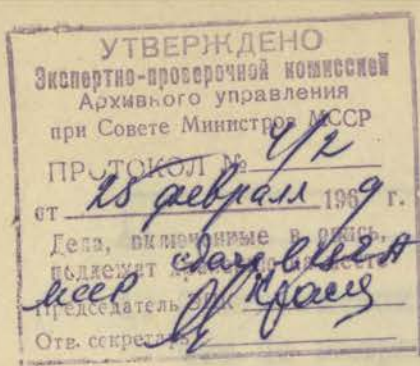 УТВЕРЖДЕНО
Экспертно-проверочной комиссией
Архивного управления
при Совете Министров МССР
ПРОТОКОЛ № 4/2
от 25 февраля 1969 г.
Дела, включенные в опись,
подлежат
МССР
Председатель
Отв. секретарь